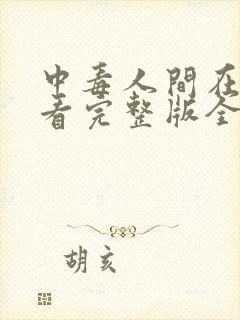 中毒人間在
看完整版全
胡亥